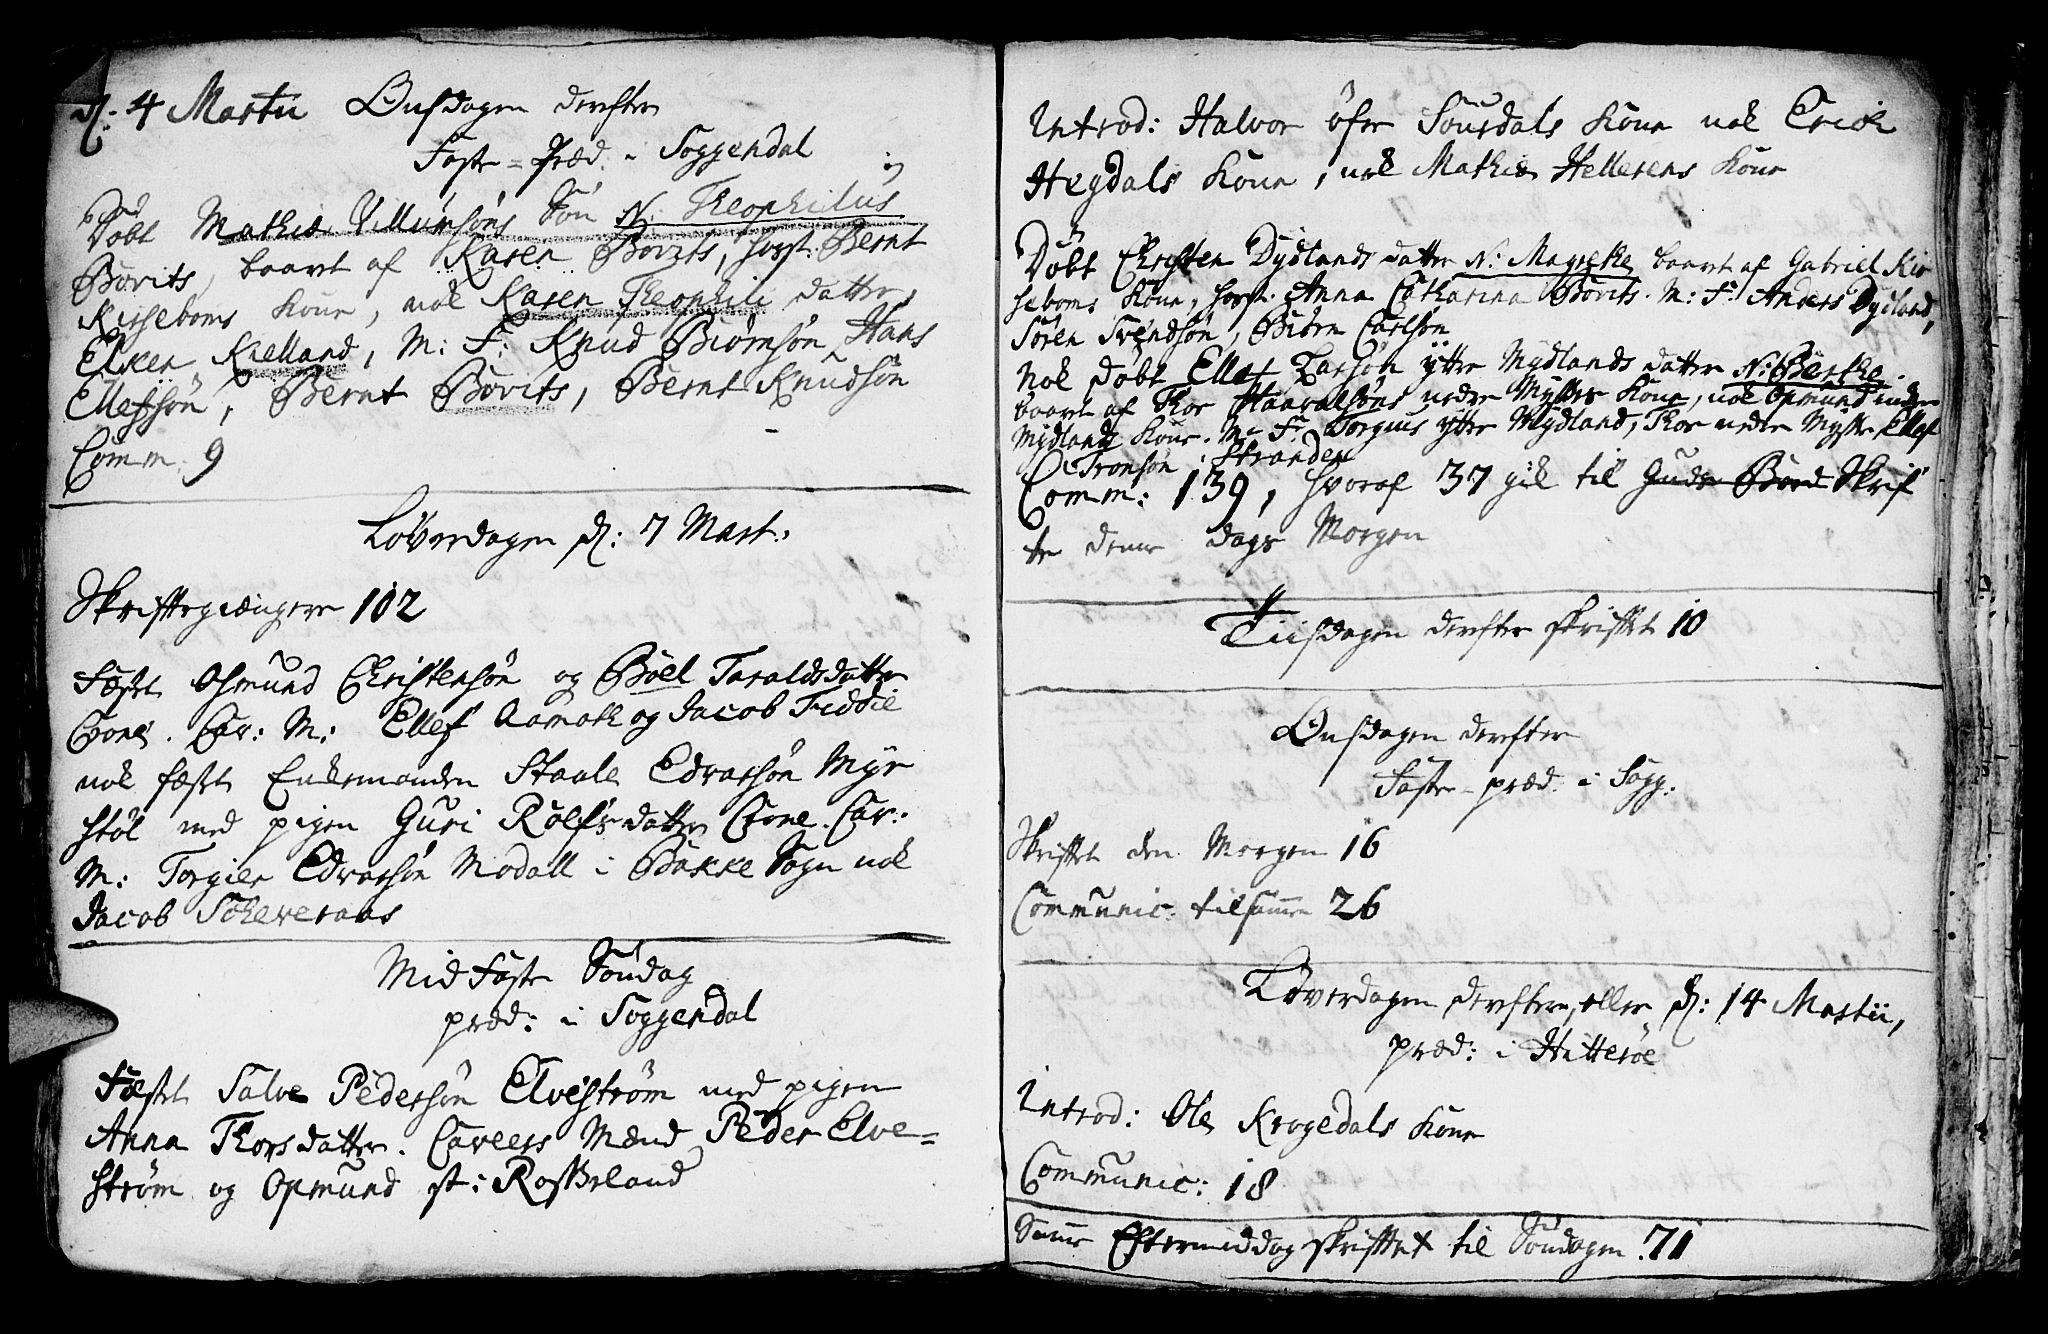 d: 4 Martii Onsdagen derefter
Faste-Præd. i Soggendal
Døbt Mathis Villumsøns Søn N: Theophilus
Bovits, baart af Karen Bovits, forst. Bernt
Kirseboms Kone, nok Karen Theophili datter,
Elken Kielland, M: F: Knud Biörnsøn Hans
Ellefsøn, Bernt Bovits, Bernt Knudsøn
Comm: 9
Løverdagen d: 7 Mart:
Skriftegiængere 102
Fæstet Osmund Christensøn og Böel Taraldsdatter
Ellef Aamoth og Jacob Fiddie
nok fæstet Enkemanden Staale Edvarsøn Myr
støl med pigen Guri Rolfsdatter
M: Torgier Edvarsøn Modall i Bakke Sogn nok
Jacob
Mid Faste Søndag
præd: i Soggendal
Fæstet Salve Pedersøn Elvestrøm med pigen
Anna Thorsdatter. Caveers Mænd Peder Elve=
strøm og Opmund st: Rosseland
Introd: Halvor öfre Sourdals Kone nok Erich
Hegdals Kone, nok Mathis Hellerens Kone
Døbt Christen Dydlands datter N: Magrete, baaret af Gabriel Kir
seboms Kone, forst. Anna Catharina Bovits. M: F: Anders Dydland,
Søren Svendsøn, Biörn Carlsøn
Nok döbt Ellef Larsøn ytre Mydlands datter N: Berthe.
baaret af Thor Haavalsøns nedre Mysses Kone, nok Opmund indre
Mydlands Kone. M: F: Torgius ytre Mydland, Thor nedre Mysse Ellef
Tronsøn i Stranden
Comm: 139, hvoraf 37 gik til Guds Bord Skrif
te denne dags Morgen
Tiisdagen derefter skriftet 10
Onsdagen derefter
Faste-præd. i Sogg:
Skriftet den Morgen 16
Communic: tilsamen 26
Løverdagen derefter, eller d: 14 Martii,
præd: i Hitterøe
Introd: Ole Krogedals Kone
Communic: 18
Samme Eftermiddag skriftet til Søndagen 71